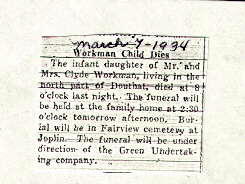 March 7-1934
Workman Child Dies
The infant daughter of Mr. and
Mrs. Clyde Workman, living in the
north part of Douthat, died at 8
o'clock last night. The funeral will
be held at the family home at 2:30
o'clock tomorrow afternoon. Bur-
ial will be in Fairview cemetery at
Joplin. The funeral will be under
direction of the Green Undertak-
ing company.